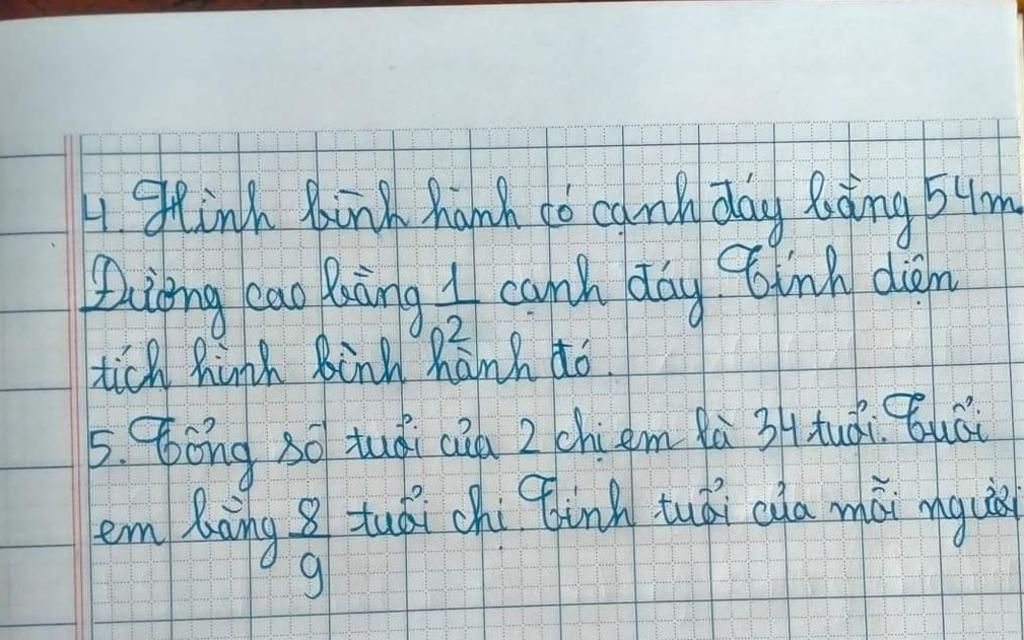 4. Hình bình hành có cạnh đáy bằng 54m.
Đường cao bằng 1/2 cạnh đáy. Tính diện
tích hình bình hành đó.
5. Tổng số tuổi của 2 chị em là 34 tuổi. Tuổi
em bằng 8/9 tuổi chị. Tính tuổi của mỗi người